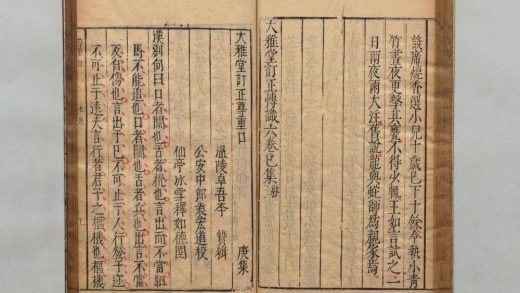 設席燒香選小兒十歲已下十餘令執小青
竹晝夜更擊其甕不得少輟王如言試之一
日兩夜雨大注舊說龍與蛇師為親家焉
大雅堂訂正博識六卷巳集終
大雅堂訂正尊重口 庚集
溫陵卓吾李 贄緝
公安中郎袁宏道校
仙亭氷雪釋如德閱
漢劉向曰口者關也舌者機也言出而不當駟
馬不能追也口者關也舌者兵也出言不當
反有傷也言出于已不可止于人行發于邇
不可止于遠夫言行者君子之樞機也樞機